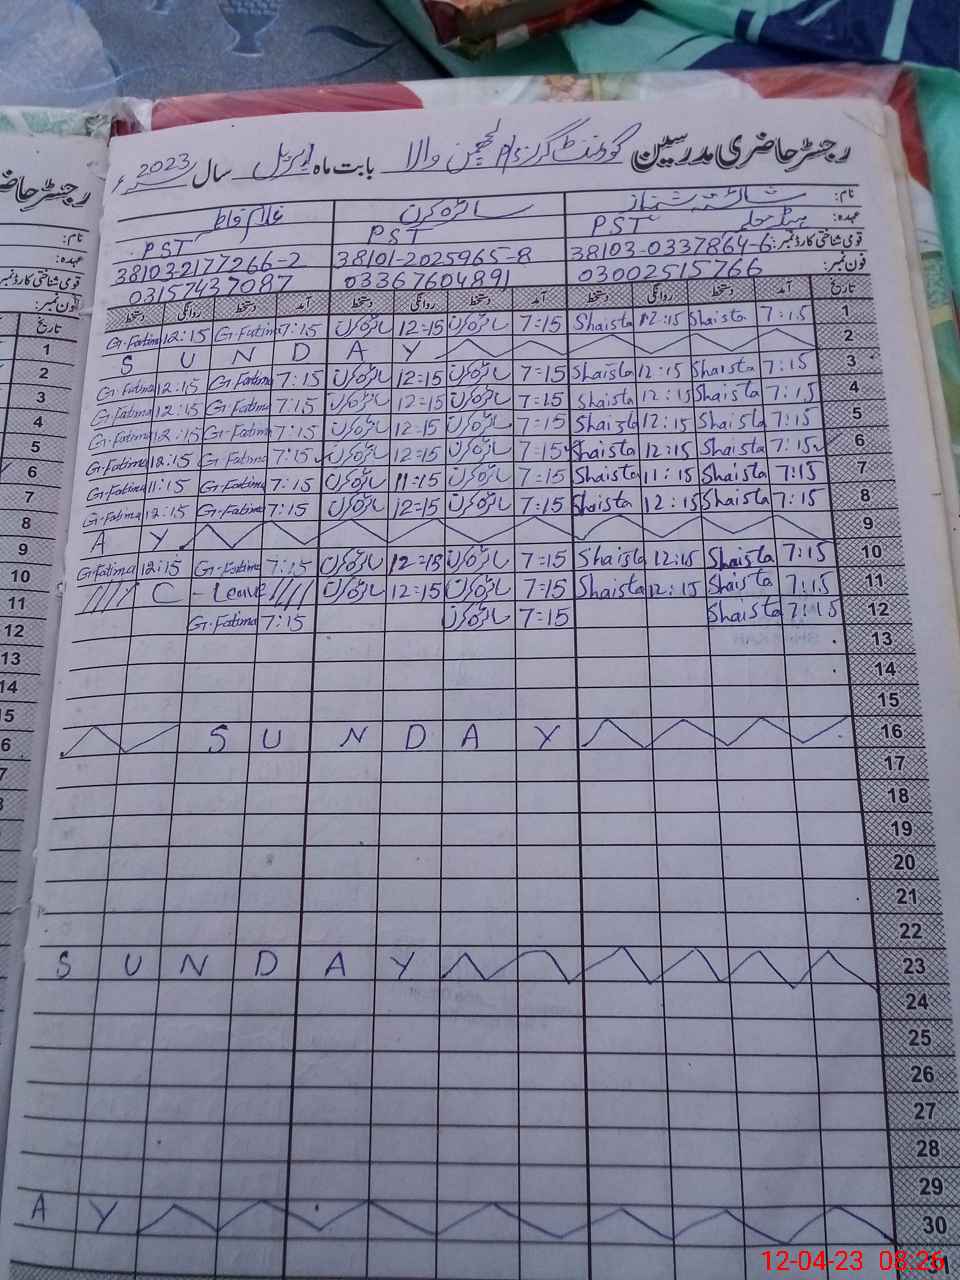 رجسٹر حاضری مدرسین گورنمنٹ گرلز پ/ا لچھن والا بابت ماہ اپریل سال 2023ء
نام: شائستہ شہناز سائرہ کرن غلام فاطمہ
عہدہ: PST ہیڈ معلمہ PST PST
قومی شناختی کارڈ نمبر: 38103-0337864-6 38101-2025965-8 38103-2177266-2
فون نمبر: 03002515766 03367604891 03157437087
تاریخ آمد دستخط روانگی دستخط آمد دستخط روانگی دستخط آمد دستخط روانگی دستخط
1 7:15 Shaista 12:15 Shaista 7=15 سائرہ کرن 12=15 سائرہ کرن 7:15 G.Fatima 12:15 G.Fatima
2 S U N D A Y
3 7:15 Shaista 12:15 Shaista 7=15 سائرہ کرن 12=15 سائرہ کرن 7:15 G.Fatima 12:15 G.Fatima
4 7:15 Shaista 12:15 Shaista 7=15 سائرہ کرن 12=15 سائرہ کرن 7:15 G.Fatima 12:15 G.Fatima
5 7:15 Shaista 12:15 Shaista 7=15 سائرہ کرن 12=15 سائرہ کرن 7:15 G.Fatima 12:15 G.Fatima
6 7:15 Shaista 12:15 Shaista 7=15 سائرہ کرن 12=15 سائرہ کرن 7:15 G.Fatima 12:15 G.Fatima
7 7:15 Shaista 11:15 Shaista 7=15 سائرہ کرن 11=15 سائرہ کرن 7:15 G.Fatima 11:15 G.Fatima
8 7:15 Shaista 12:15 Shaista 7=15 سائرہ کرن 12=15 سائرہ کرن 7:15 G.Fatima 12:15 G.Fatima
9 A Y
10 7:15 Shaista 12:15 Shaista 7=15 سائرہ کرن 12=15 سائرہ کرن 7:15 G.Fatima 12:15 G.Fatima
11 7:15 Shaista 12:15 Shaista 7=15 سائرہ کرن 12=15 سائرہ کرن C - Leave
12 7:15 Shaista 7=15 سائرہ کرن 7:15 G.Fatima
13
14
15
16 S U N D A Y
17
18
19
20
21
22
23 S U N D A Y
24
25
26
27
28
29
30 A Y
31
رجسٹر حاضری
نام:
عہدہ:
قومی شناختی کارڈ نمبر:
فون نمبر:
تاریخ
1
2
3
4
5
6
7
8
9
10
11
12
13
14
15
12-04-23 08:26